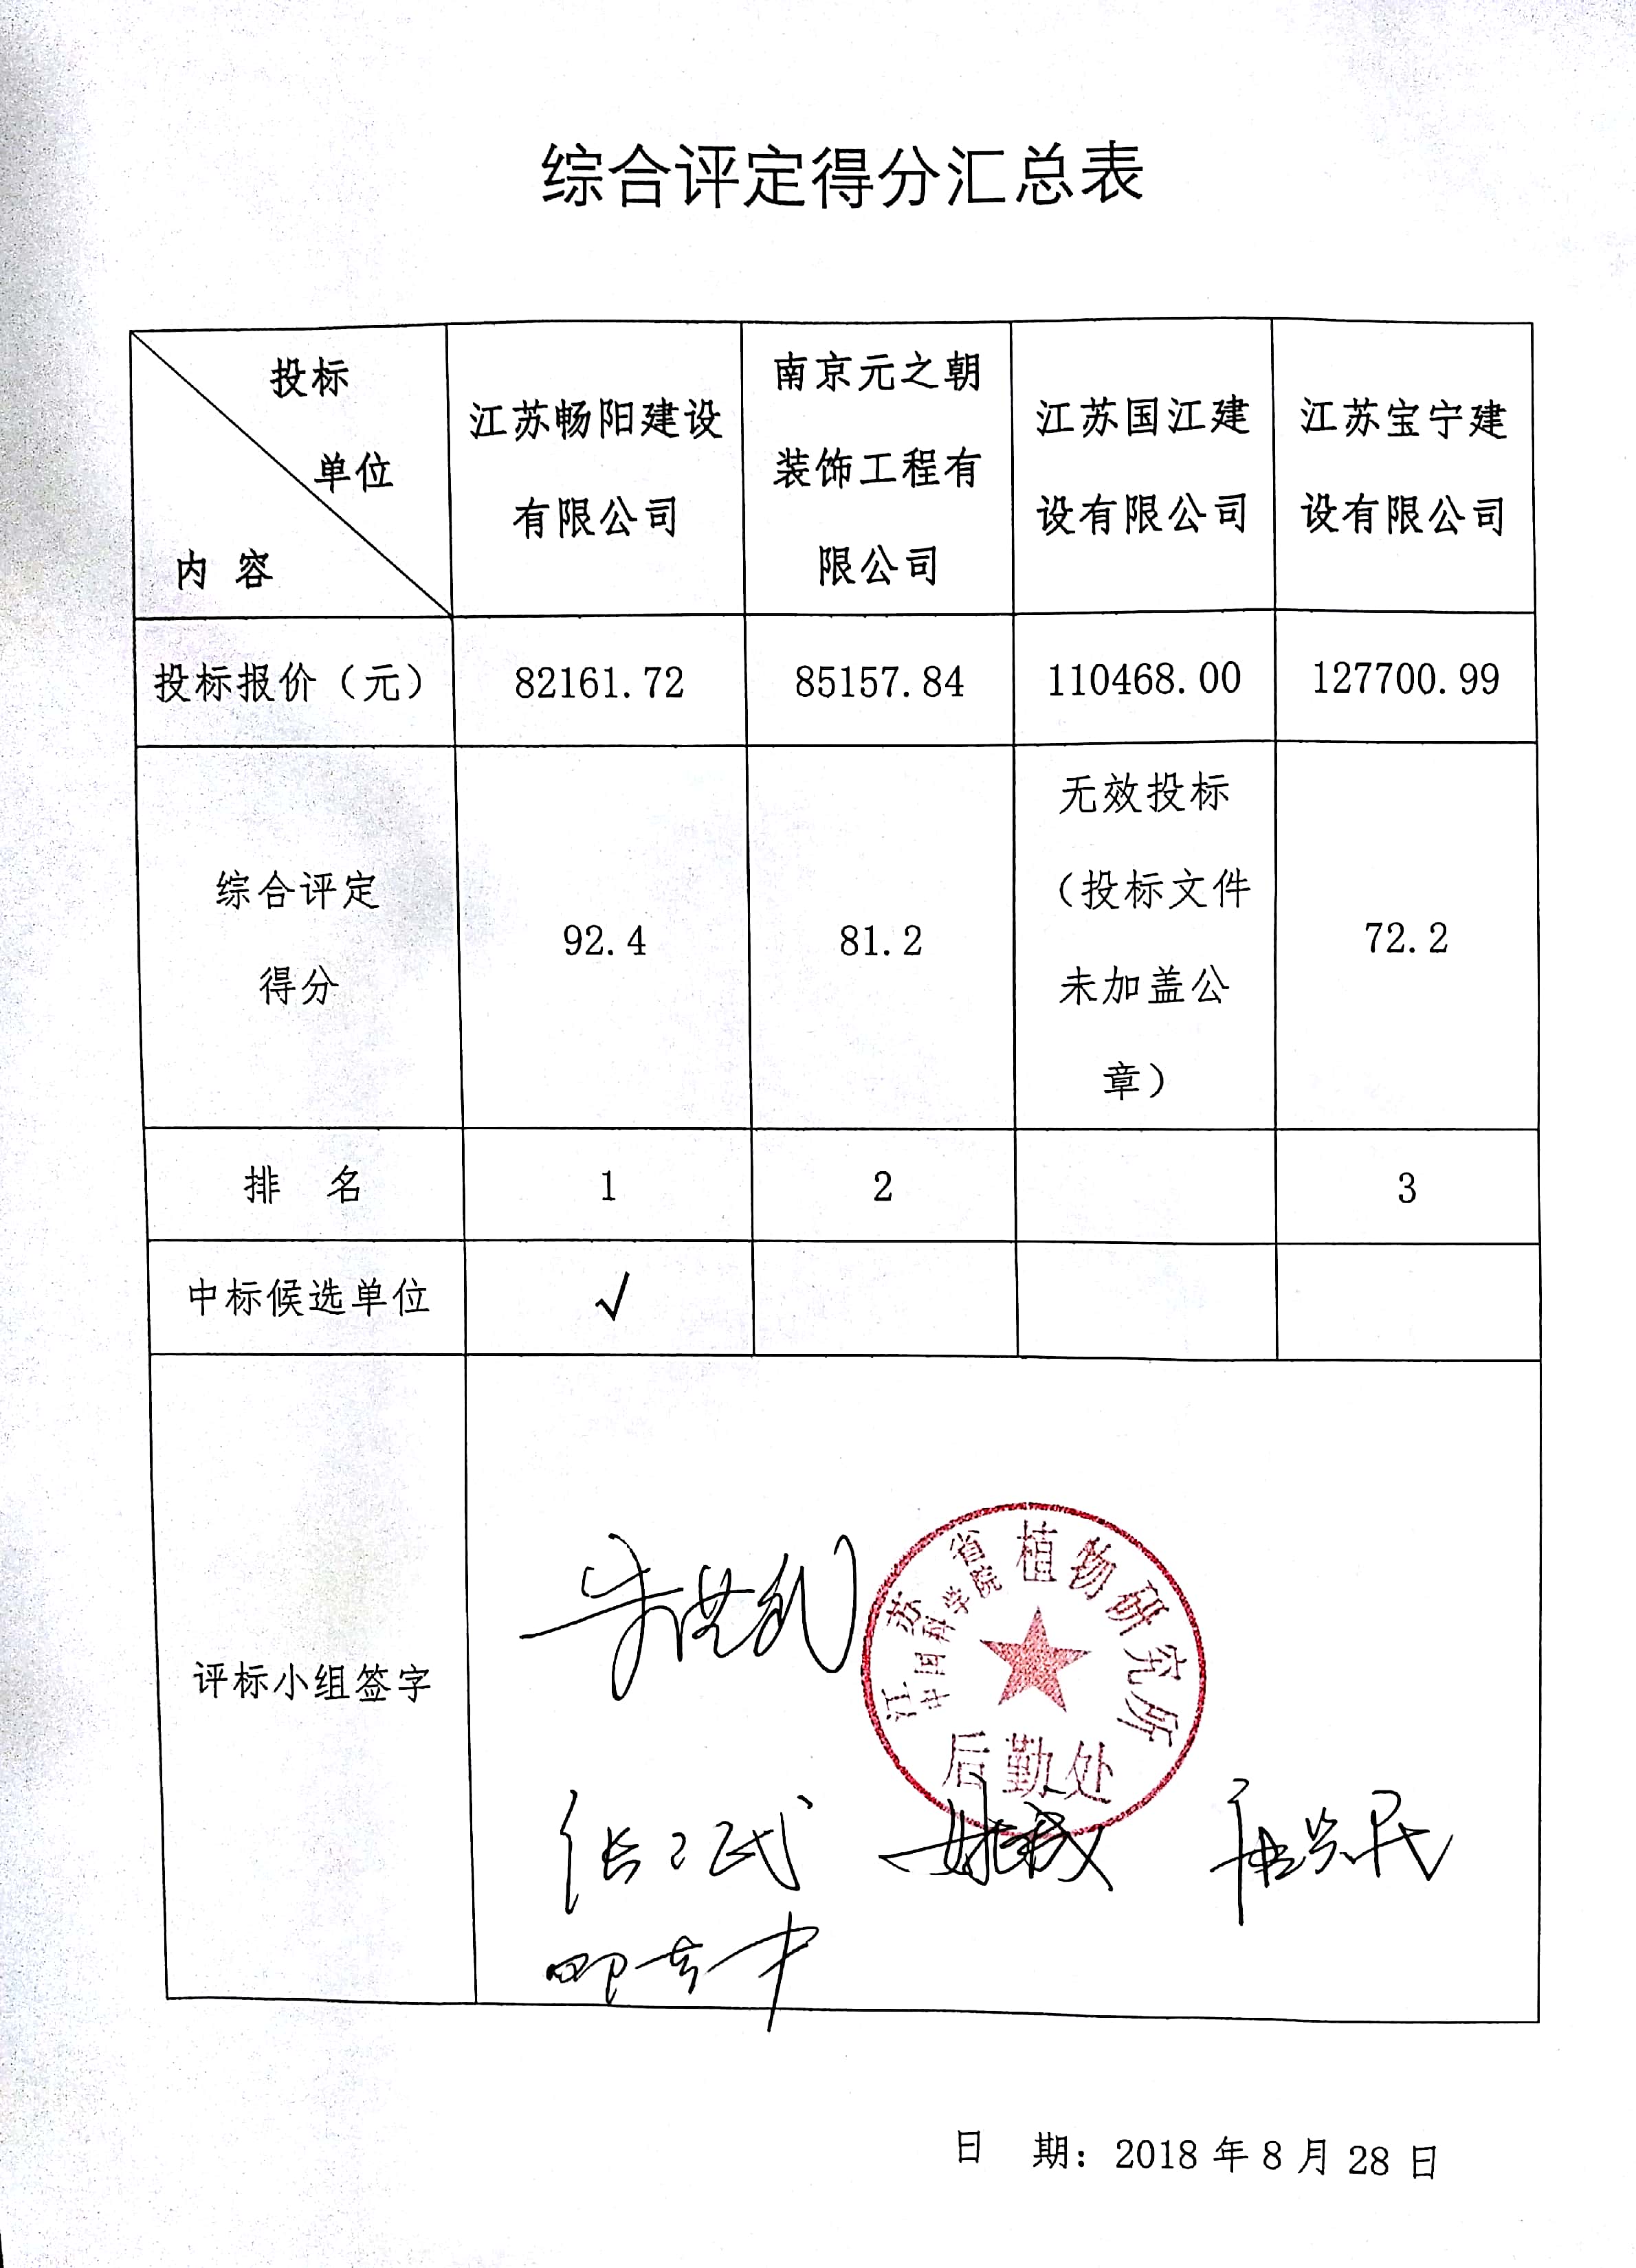 综合评定得分汇总表
投标
单位
内 容
江苏畅阳建设
有限公司
南京元之朝
装饰工程有
限公司
江苏国江建
设有限公司
江苏宝宁建
设有限公司
投标报价（元）
82161.72
85157.84
110468.00
127700.99
综合评定
得分
92.4
81.2
无效投标
（投标文件
未加盖公
章）
72.2
排 名
1
2
3
中标候选单位
√
评标小组签字
江苏省
中国科学院
植物研究所
后勤处
日 期：2018 年 8 月 28 日